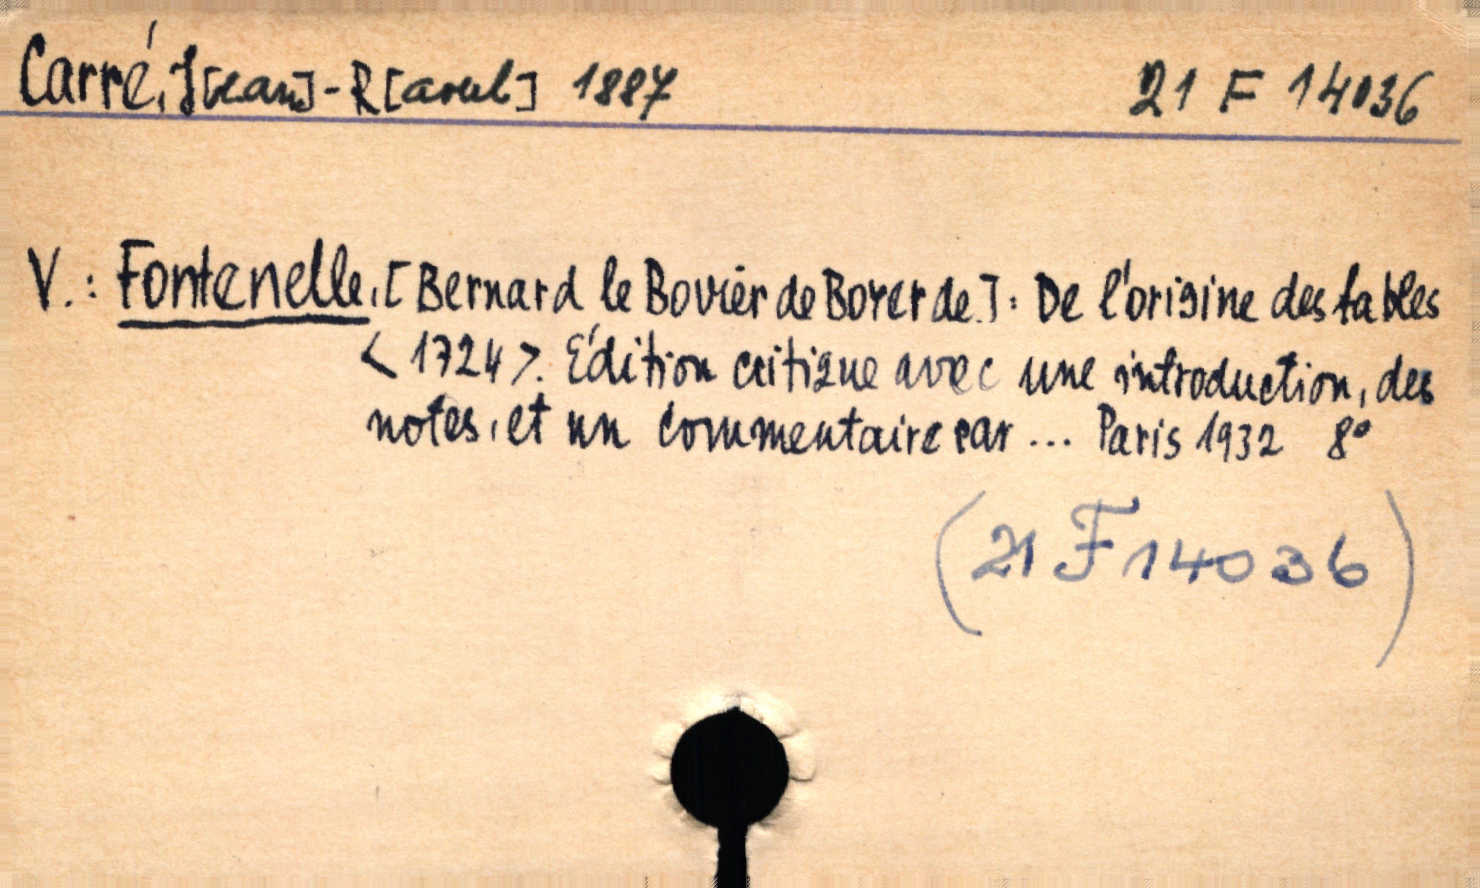 Carré, J[ean]-R[aoul] 1887 21 F 14036
V.: Fontenelle, [Bernard le Bovier de Boyer de.]: De l'origine des fables
<1724>. Édition critique avec une introduction, des
notes, et un commentaire par ... Paris 1932 8°
(21 F 14036)